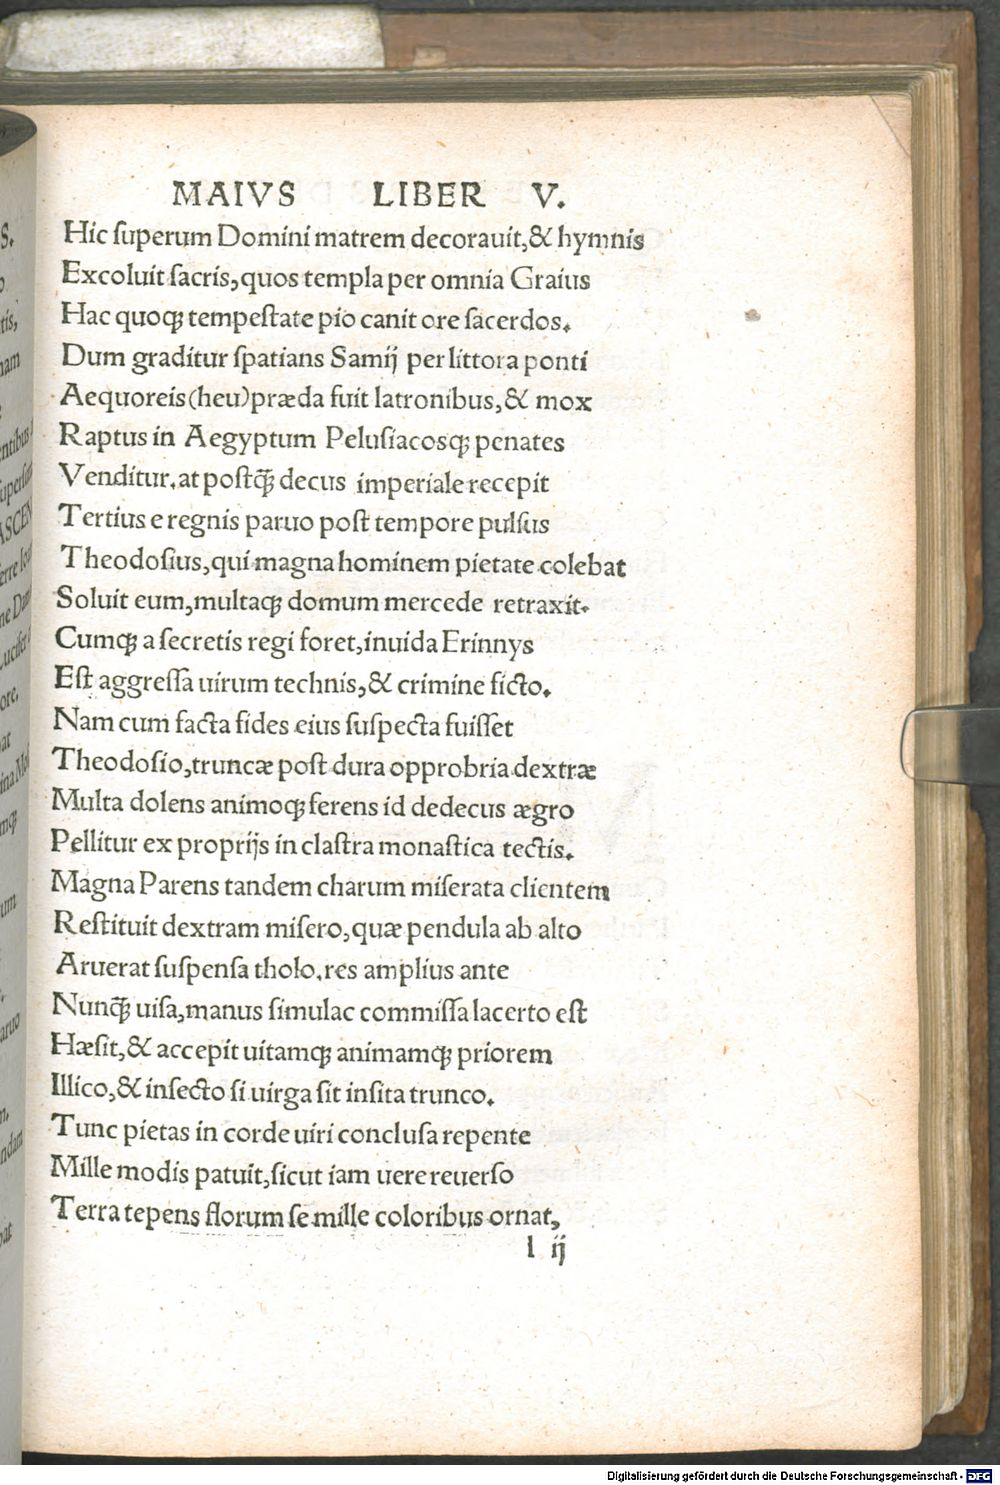 MAIVS LIBER V.
Hic ſuperum Domini matrem decorauit,& hymnis
Excoluit ſacris,quos templa per omnia Graius
Hac quoqꝫ tempeſtate pio canit ore ſacerdos.
Dum graditur ſpatians Samij per littora ponti
Aequoreis(heu)præda fuit latronibus,& mox
Raptus in Aegyptum Peluſiacosqꝫ penates
Venditur.at poſtq̃ꝫ decus imperiale recepit
Tertius e regnis paruo poſt tempore pulſus
Theodoſius,qui magna hominem pietate colebat
Soluit eum,multaqꝫ domum mercede retraxit.
Cumqꝫ a ſecretis regi foret,inuida Erinnys
Eſt aggreſſa uirum technis,& crimine ficto.
Nam cum facta fides eius ſuſpecta fuiſſet
Theodoſio,truncæ poſt dura opprobria dextræ
Multa dolens animoqꝫ ferens id dedecus ægro
Pellitur ex proprijs in claſtra monaſtica tectis.
Magna Parens tandem charum miſerata clientem
Reſtituit dextram miſero,quæ pendula ab alto
Aruerat ſuſpenſa tholo.res amplius ante
Nunq̃ꝫ uiſa,manus ſimulac commiſſa lacerto eſt
Hæſit,& accepit uitamqꝫ animamqꝫ priorem
Illico,& inſecto ſi uirga ſit inſita trunco.
Tunc pietas in corde uiri concluſa repente
Mille modis patuit,ſicut iam uere reuerſo
Terra tepens florum ſe mille coloribus ornat,
l ij
Digitalisierung gefördert durch die Deutsche Forschungsgemeinschaft - DFG